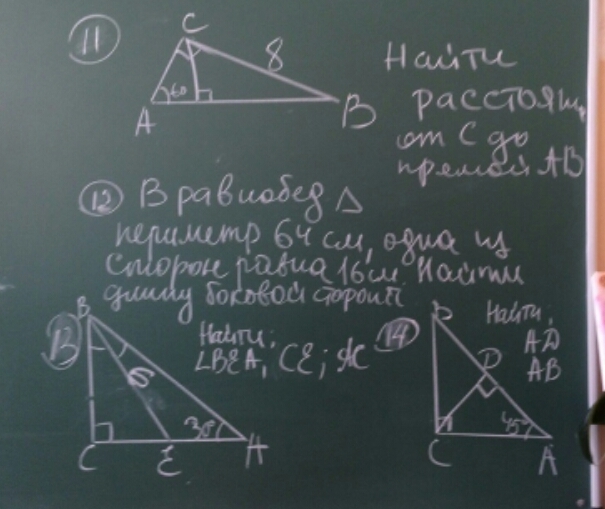 11
C
8
60
A
B
Найти
расстоян.
от C до
прямой AB
12 В равнобед Δ
периметр 64 см, одна из
сторон равна 16см Найти
длину боковой сторон
13
B
Найти:
∠BEA, CE; AC
30°
C
E
A
14
Найти:
AD
AB
D
45°
C
A